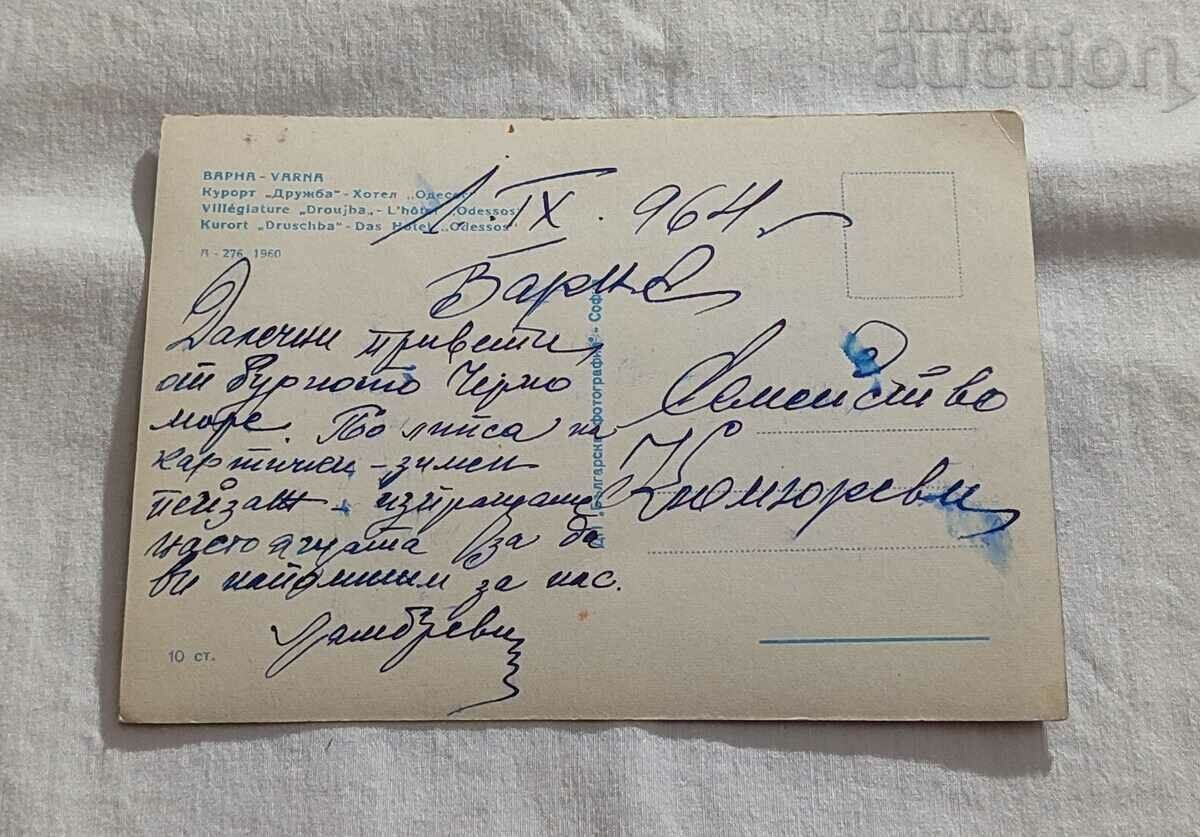 ВАРНА - VARNA
Курорт „Дружба" - Хотел „Одесос"
Villégiature „Droujba„ - L'hôtel „Odessos"
Kurort „Druschba" - Das Hotel „Odessos"
276, 1960
1. IX. 964
Варна
Далечни привети
от бурното Черно
море. По липса на
картички - зимен
пейзаж - изпращаме
настоящата за да
ви напомним за нас.
10 ст.
Българска фотография" - Соф
Семейство